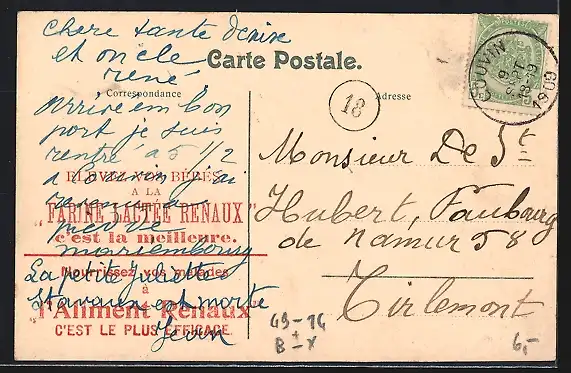 chere tante denise
et oncle
rené
Carte Postale.
Correspondance
Adresse
COUVIN
9
SEPT
18-19
1909
18
arrivé en bon
port je suis
rentré a 5 1/2
a Couvin j'ai
ELEVEZ VOS BÉBÉS
A LA
"FARINE LACTÉE RENAUX"
c'est la meilleure.
mariembourg
Nourrissez vos malades
à
La petite Juliette
Stavaux est morte
"l'Aliment Renaux
C'EST LE PLUS EFFICACE.
Jean
Monsieur De St
Hubert, Faubourg
de Namur 58
Tirlemont
49-14
+
B-X
6,-